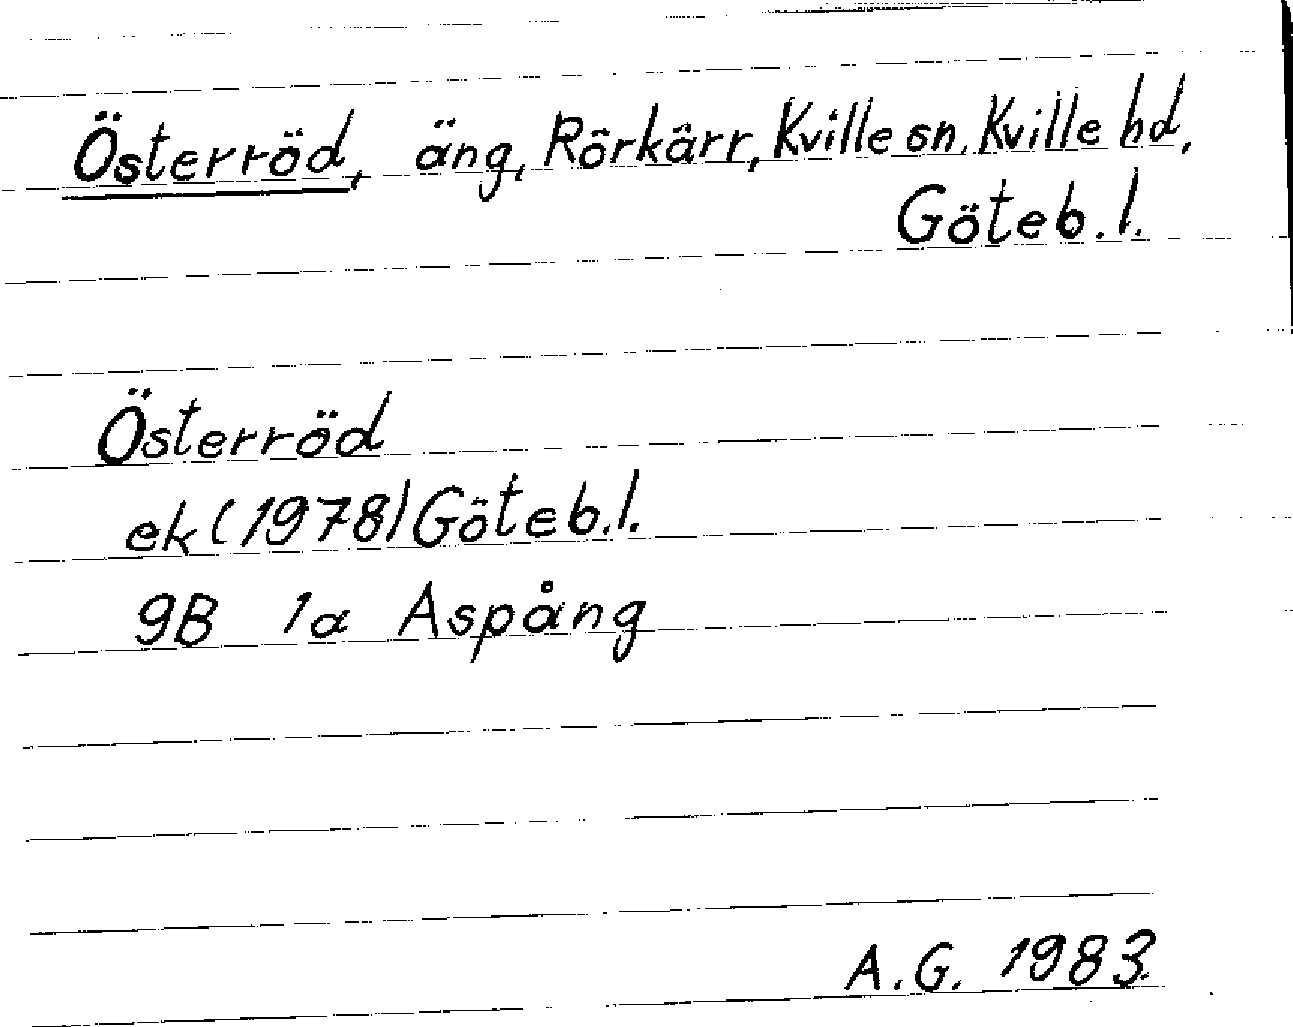 Österröd, äng, Rörkärr, Kville sn. Kville hd,
Göteb. l.
Österröd
ek (1978) Göteb. l.
9B 1a Aspång
A.G. 1983.